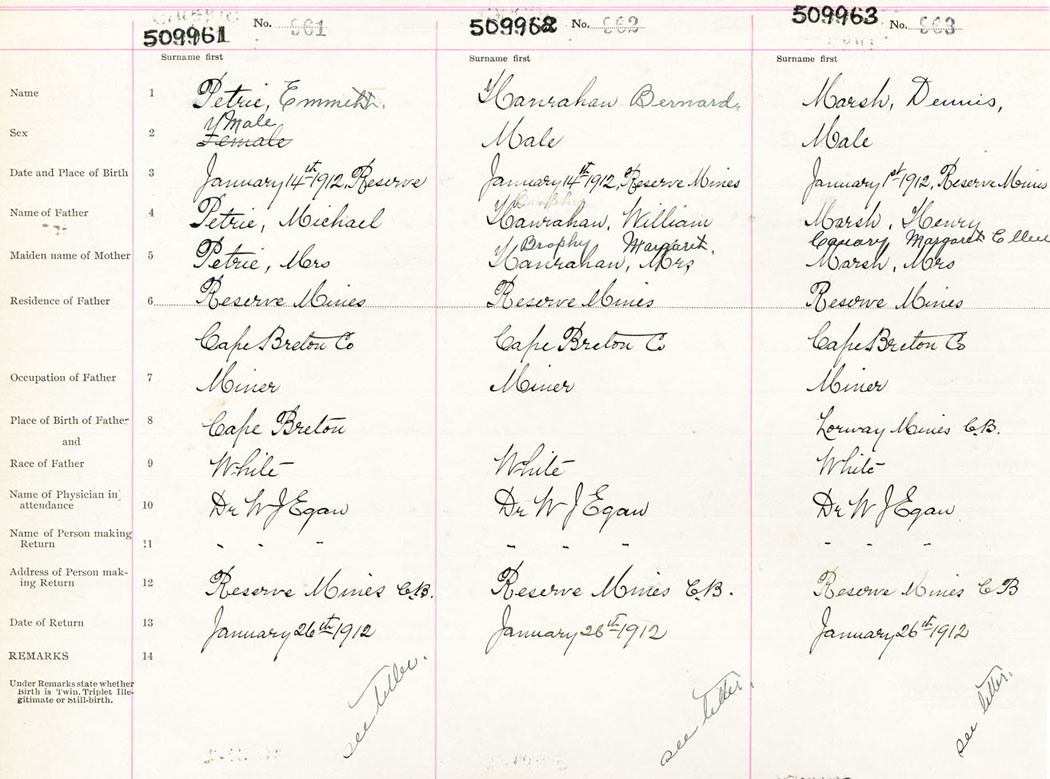 509961 No. 961 509962 No. 962 509963 No. 963
Surname first Surname first Surname first
Name 1 Petrie, Emmett. Hanrahan Bernard. Marsh, Dennis,
Male
Sex 2 Female Male Male
Date and Place of Birth 3 January 14th 1912, Reserve January 14th 1912, Reserve Mines January 1st 1912, Reserve Mines
Brophy
Name of Father 4 Petrie, Michael Hanrahan, William Marsh, Henry
Brophy Margaret. Margaret Ellen
Maiden name of Mother 5 Petrie, Mrs Hanrahan, Mrs Marsh, Mrs
Residence of Father 6 Reserve Mines Reserve Mines Reserve Mines
Cape Breton Co Cape Breton Co Cape Breton Co
Occupation of Father 7 Miner Miner Miner
Place of Birth of Father 8 Cape Breton Lorway Mines C.B.
and
Race of Father 9 White White White
Name of Physician in
attendance 10 Dr W J Egan Dr W J Egan Dr W J Egan
Name of Person making
Return 11 " " " " " " " " "
Address of Person mak-
ing Return 12 Reserve Mines C.B. Reserve Mines C.B. Reserve Mines C B
Date of Return 13 January 26th 1912 January 26th 1912 January 26th 1912
REMARKS 14
Under Remarks state whether
Birth is Twin, Triplet Ille-
gitimate or Still-birth.
see letter. see letter. see letter.